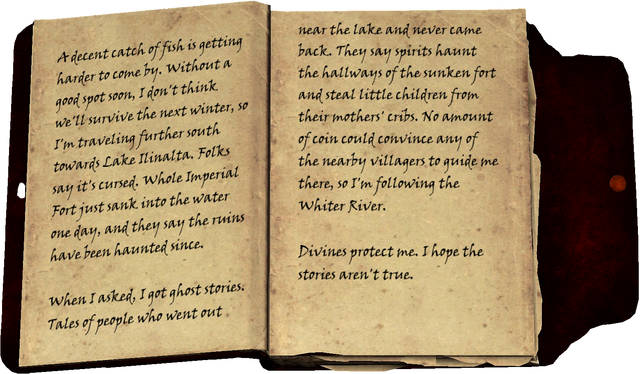 A decent catch of fish is getting
harder to come by. Without a
good spot soon, I don't think
we'll survive the next winter, so
I'm traveling further south
towards Lake Ilinalta. Folks
say it's cursed. Whole Imperial
Fort just sank into the water
one day, and they say the ruins
have been haunted since.
When I asked, I got ghost stories.
Tales of people who went out
near the lake and never came
back. They say spirits haunt
the hallways of the sunken fort
and steal little children from
their mothers' cribs. No amount
of coin could convince any of
the nearby villagers to guide me
there, so I'm following the
Whiter River.
Divines protect me. I hope the
stories aren't true.